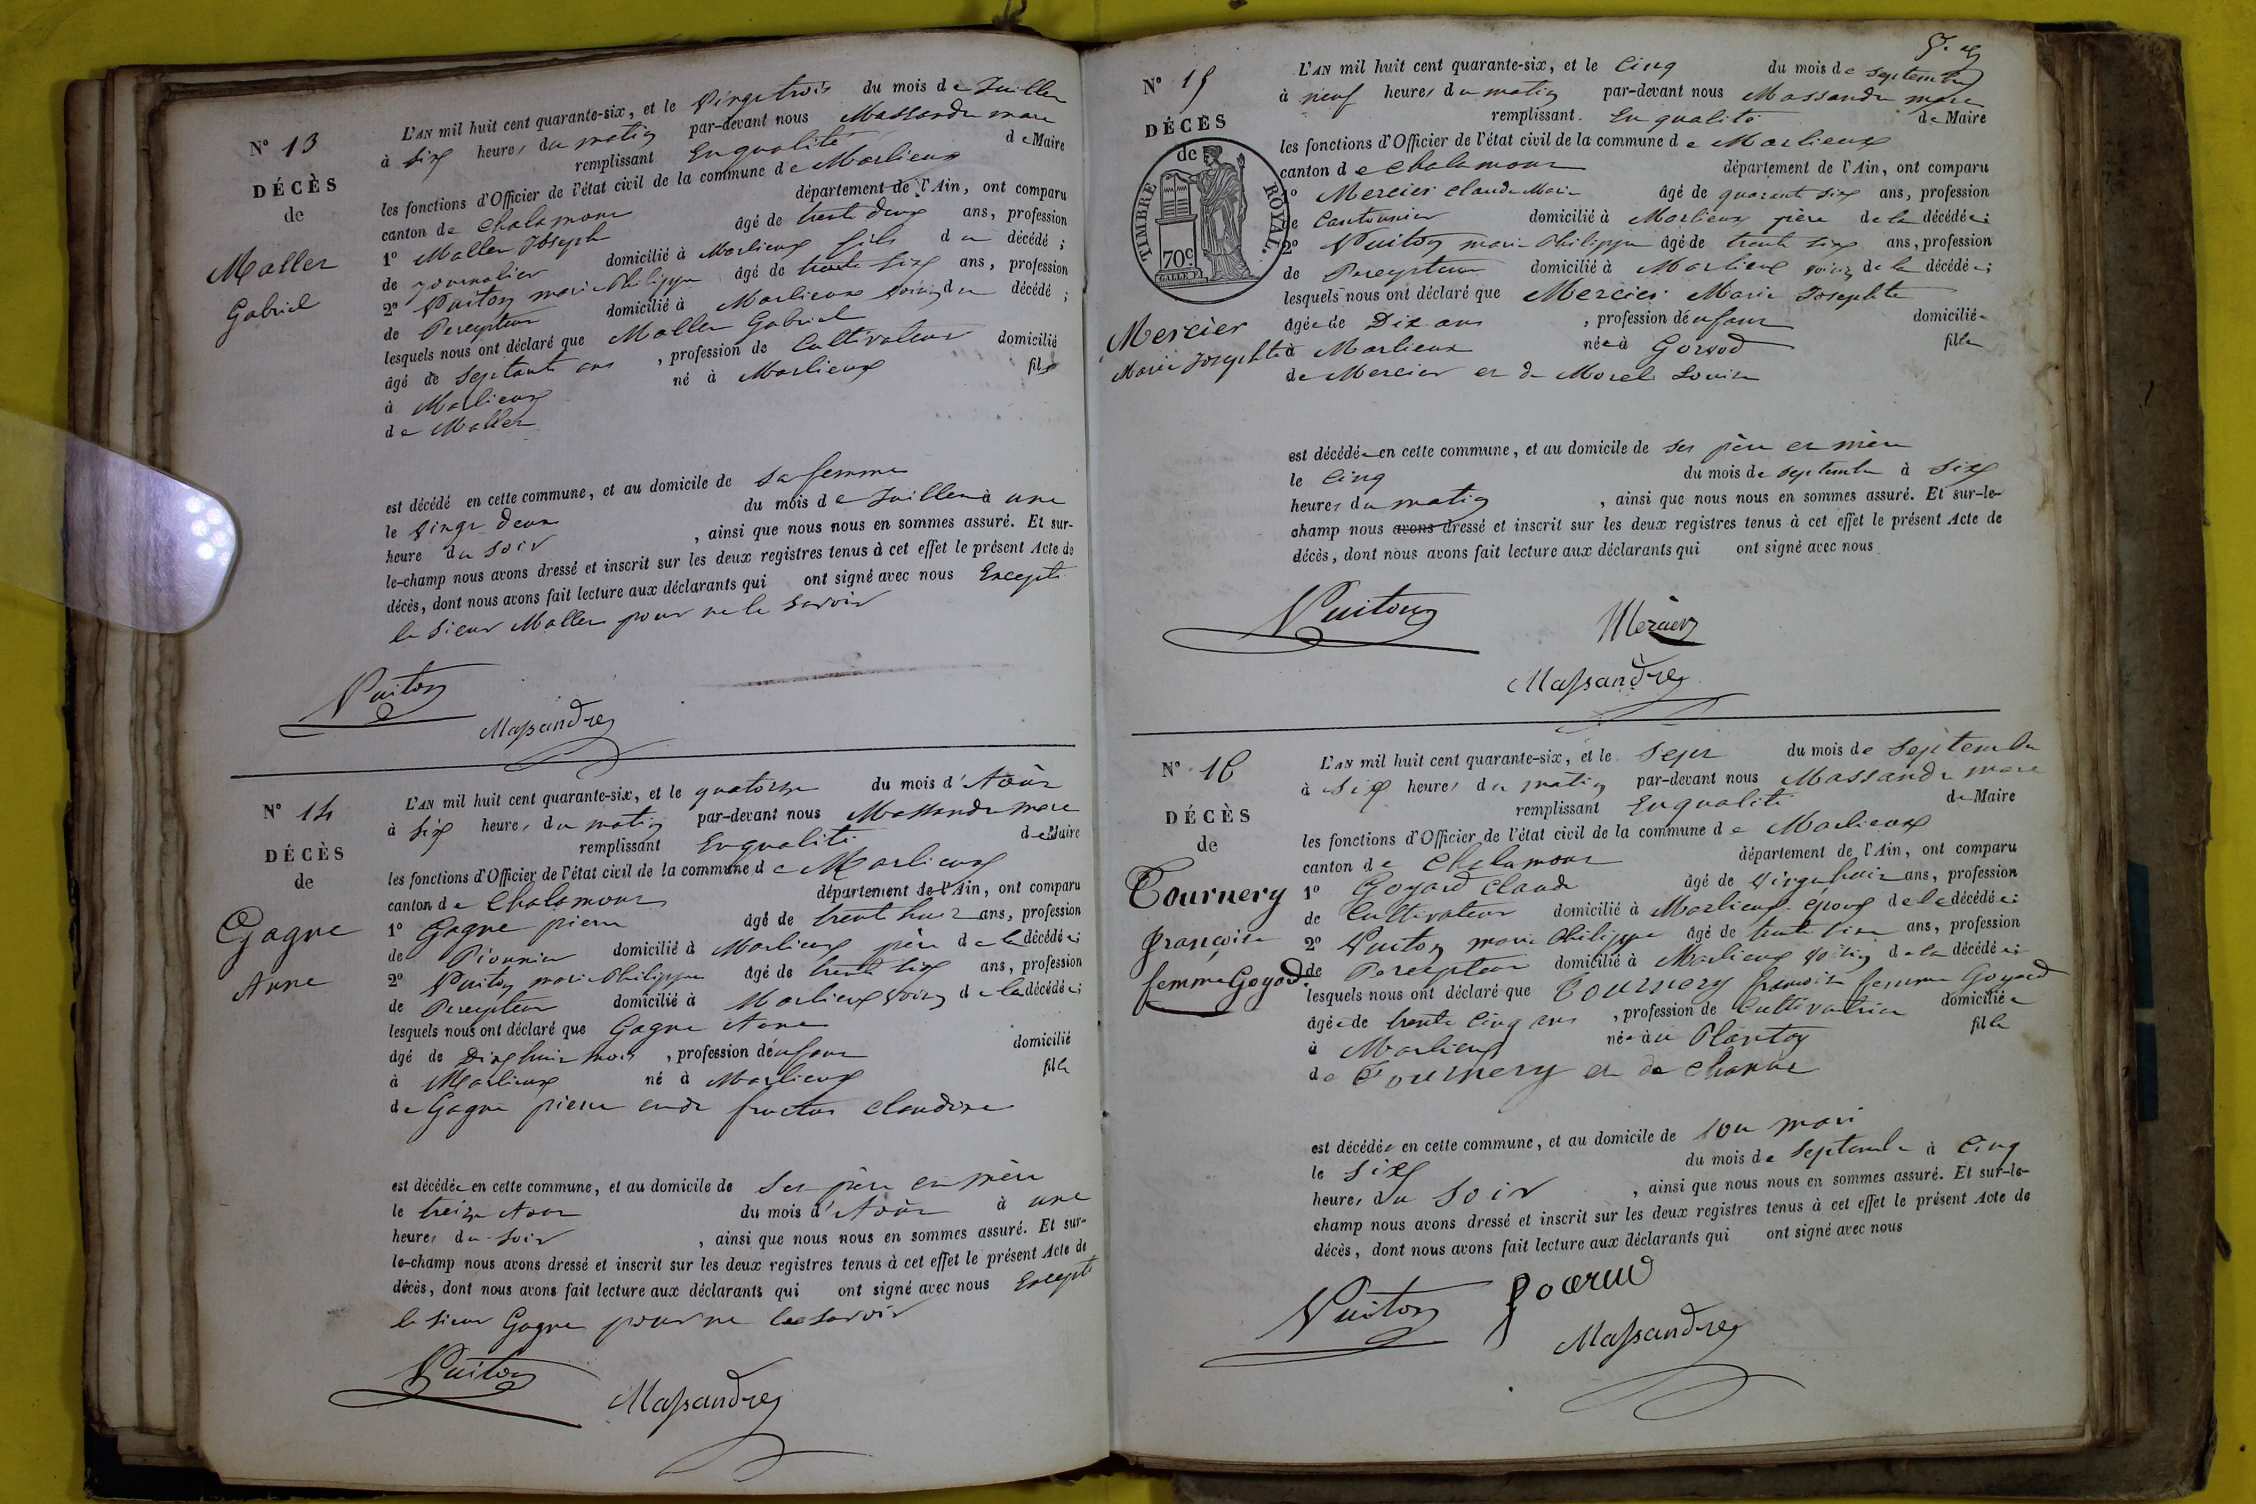 N° 13
DÉCÈS
de
Maller
Gabriel
L'AN mil huit cent quarante-six, et le vingt trois du mois de Juillet
à six heures du matin par-devant nous Massandre marc
remplissant En qualité de Maire
les fonctions d'Officier de l'état civil de la commune de Marlieux
canton de Chalamont département de l'Ain, ont comparu
1° Maller Joseph âgé de trente deux ans, profession
de journalier domicilié à Marlieux fils du décédé ;
2° Vuiton marie Philippe âgé de trente six ans, profession
de Percepteur domicilié à Marlieux voisin du décédé ;
lesquels nous ont déclaré que Maller Gabriel
âgé de septante ans , profession de Cultivateur domicilié
à Marlieux né à Marlieux fils
de Maller
est décédé en cette commune, et au domicile de sa femme
le vingt deux du mois de Juillet à une
heure du soir , ainsi que nous nous en sommes assuré. Et sur-
le-champ nous avons dressé et inscrit sur les deux registres tenus à cet effet le présent Acte de
décès, dont nous avons fait lecture aux déclarants qui ont signé avec nous Excepté
le sieur Maller pour ne le savoir
Vuiton
Massandre
N° 14
DÉCÈS
de
Gagne
Anne
L'AN mil huit cent quarante-six, et le quatorze du mois d'Août
à six heures du matin par-devant nous Massandre marc
remplissant En qualité de Maire
les fonctions d'Officier de l'état civil de la commune de Marlieux
canton de Chalamont département de l'Ain, ont comparu
1° Gagne pierre âgé de trente huit ans, profession
de Pionnier domicilié à Marlieux père de la décédée ;
2° Vuiton marie Philippe âgé de trente six ans, profession
de Percepteur domicilié à Marlieux voisin de la décédée ;
lesquels nous ont déclaré que Gagne Anne
âgé de Dix huit mois , profession d'enfant domicilié
à Marlieux né à Marlieux fille
de Gagne pierre et de fructus claudine
est décédée en cette commune, et au domicile de ses père et mère
le treize Aout du mois d'Août à une
heures du soir , ainsi que nous nous en sommes assuré. Et sur-
le-champ nous avons dressé et inscrit sur les deux registres tenus à cet effet le présent Acte de
décès, dont nous avons fait lecture aux déclarants qui ont signé avec nous Excepté
le sieur Gagne pour ne le savoir
Vuiton
Massandre
N° 15
DÉCÈS
de
TIMBRE ROYAL.
70c
Mercier
Marie Josephte
L'AN mil huit cent quarante-six, et le cinq du mois de septembre
à neuf heures du matin par-devant nous Massandre marc
remplissant En qualité de Maire
les fonctions d'Officier de l'état civil de la commune de Marlieux
canton de Chalamont département de l'Ain, ont comparu
1° Mercier claude Marie âgé de quarante six ans, profession
de Cantonnier domicilié à Marlieux père de la décédée ;
2° Vuiton marie Philippe âgé de trente six ans, profession
de Percepteur domicilié à Marlieux voisin de la décédée ;
lesquels nous ont déclaré que Mercier Marie Josephte
âgée de Dix ans , profession d'enfant domiciliée
à Marlieux née à Gorvod fille
de Mercier et de Morel Louise
est décédée en cette commune, et au domicile de ses père et mère
le cinq du mois de septembre à six
heures du matin , ainsi que nous nous en sommes assuré. Et sur-le-
champ nous avons dressé et inscrit sur les deux registres tenus à cet effet le présent Acte de
décès, dont nous avons fait lecture aux déclarants qui ont signé avec nous
Vuiton
Mercier
Massandre
N° 16
DÉCÈS
de
Tournery
françoise
femme Goyard
L'AN mil huit cent quarante-six, et le sept du mois de septembre
à six heures du matin par-devant nous Massandre marc
remplissant En qualité de Maire
les fonctions d'Officier de l'état civil de la commune de Marlieux
canton de Chalamont département de l'Ain, ont comparu
1° Goyard Claude âgé de vingt huit ans, profession
de Cultivateur domicilié à Marlieux époux de la décédée ;
2° Vuiton marie Philippe âgé de trente six ans, profession
de Percepteur domicilié à Marlieux voisin de la décédée ;
lesquels nous ont déclaré que Tournery francoise femme Goyard
âgée de trente cinq ans , profession de Cultivatrice domiciliée
à Marlieux née au Plantay fille
de Tournery et de
est décédée en cette commune, et au domicile de son mari
le six du mois de septembre à cinq
heures du soir , ainsi que nous nous en sommes assuré. Et sur-le-
champ nous avons dressé et inscrit sur les deux registres tenus à cet effet le présent Acte de
décès, dont nous avons fait lecture aux déclarants qui ont signé avec nous
Vuiton
Massandre